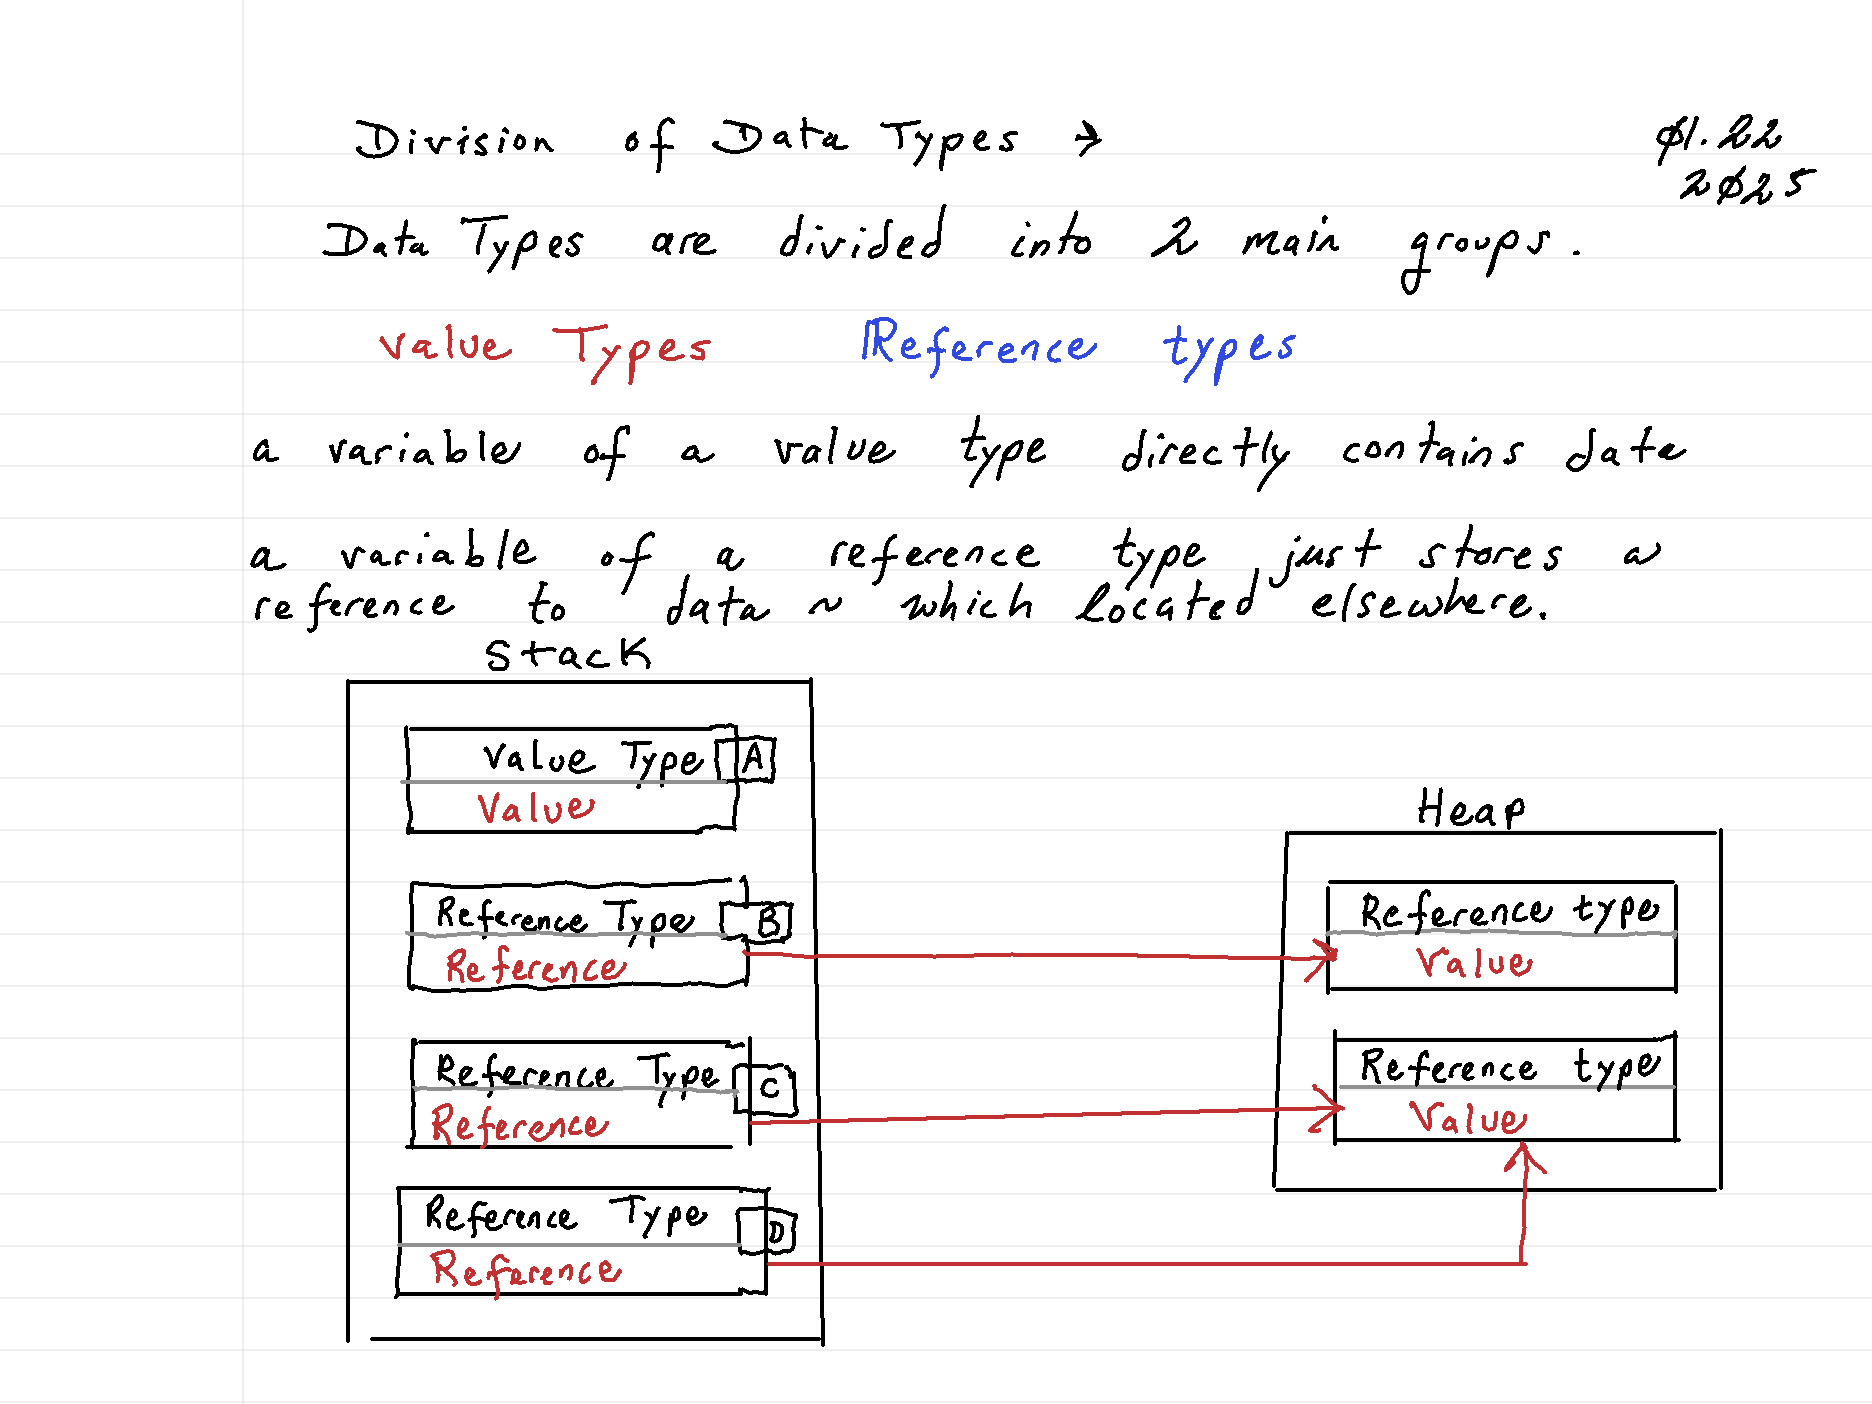 Division of Data Types →
Ø1.22
2Ø25
Data Types are divided into 2 main groups.
Value Types Reference types
a variable of a value type directly contains data
a variable of a reference type just stores a
reference to data ~ which located elsewhere.
Stack
Value Type A
Value
Reference Type B
Reference
Reference Type C
Reference
Reference Type D
Reference
Heap
Reference type
Value
Reference type
Value